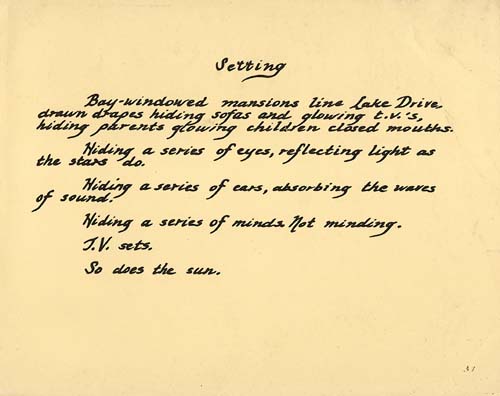 Setting
Bay-windowed mansions line Lake Drive
drawn drapes hiding sofas and glowing t.v.'s,
hiding parents glowing children closed mouths.
Hiding a series of eyes, reflecting light as
the stars do.
Hiding a series of ears, absorbing the waves
of sound.
Hiding a series of minds. Not minding.
T.V. sets.
So does the sun.